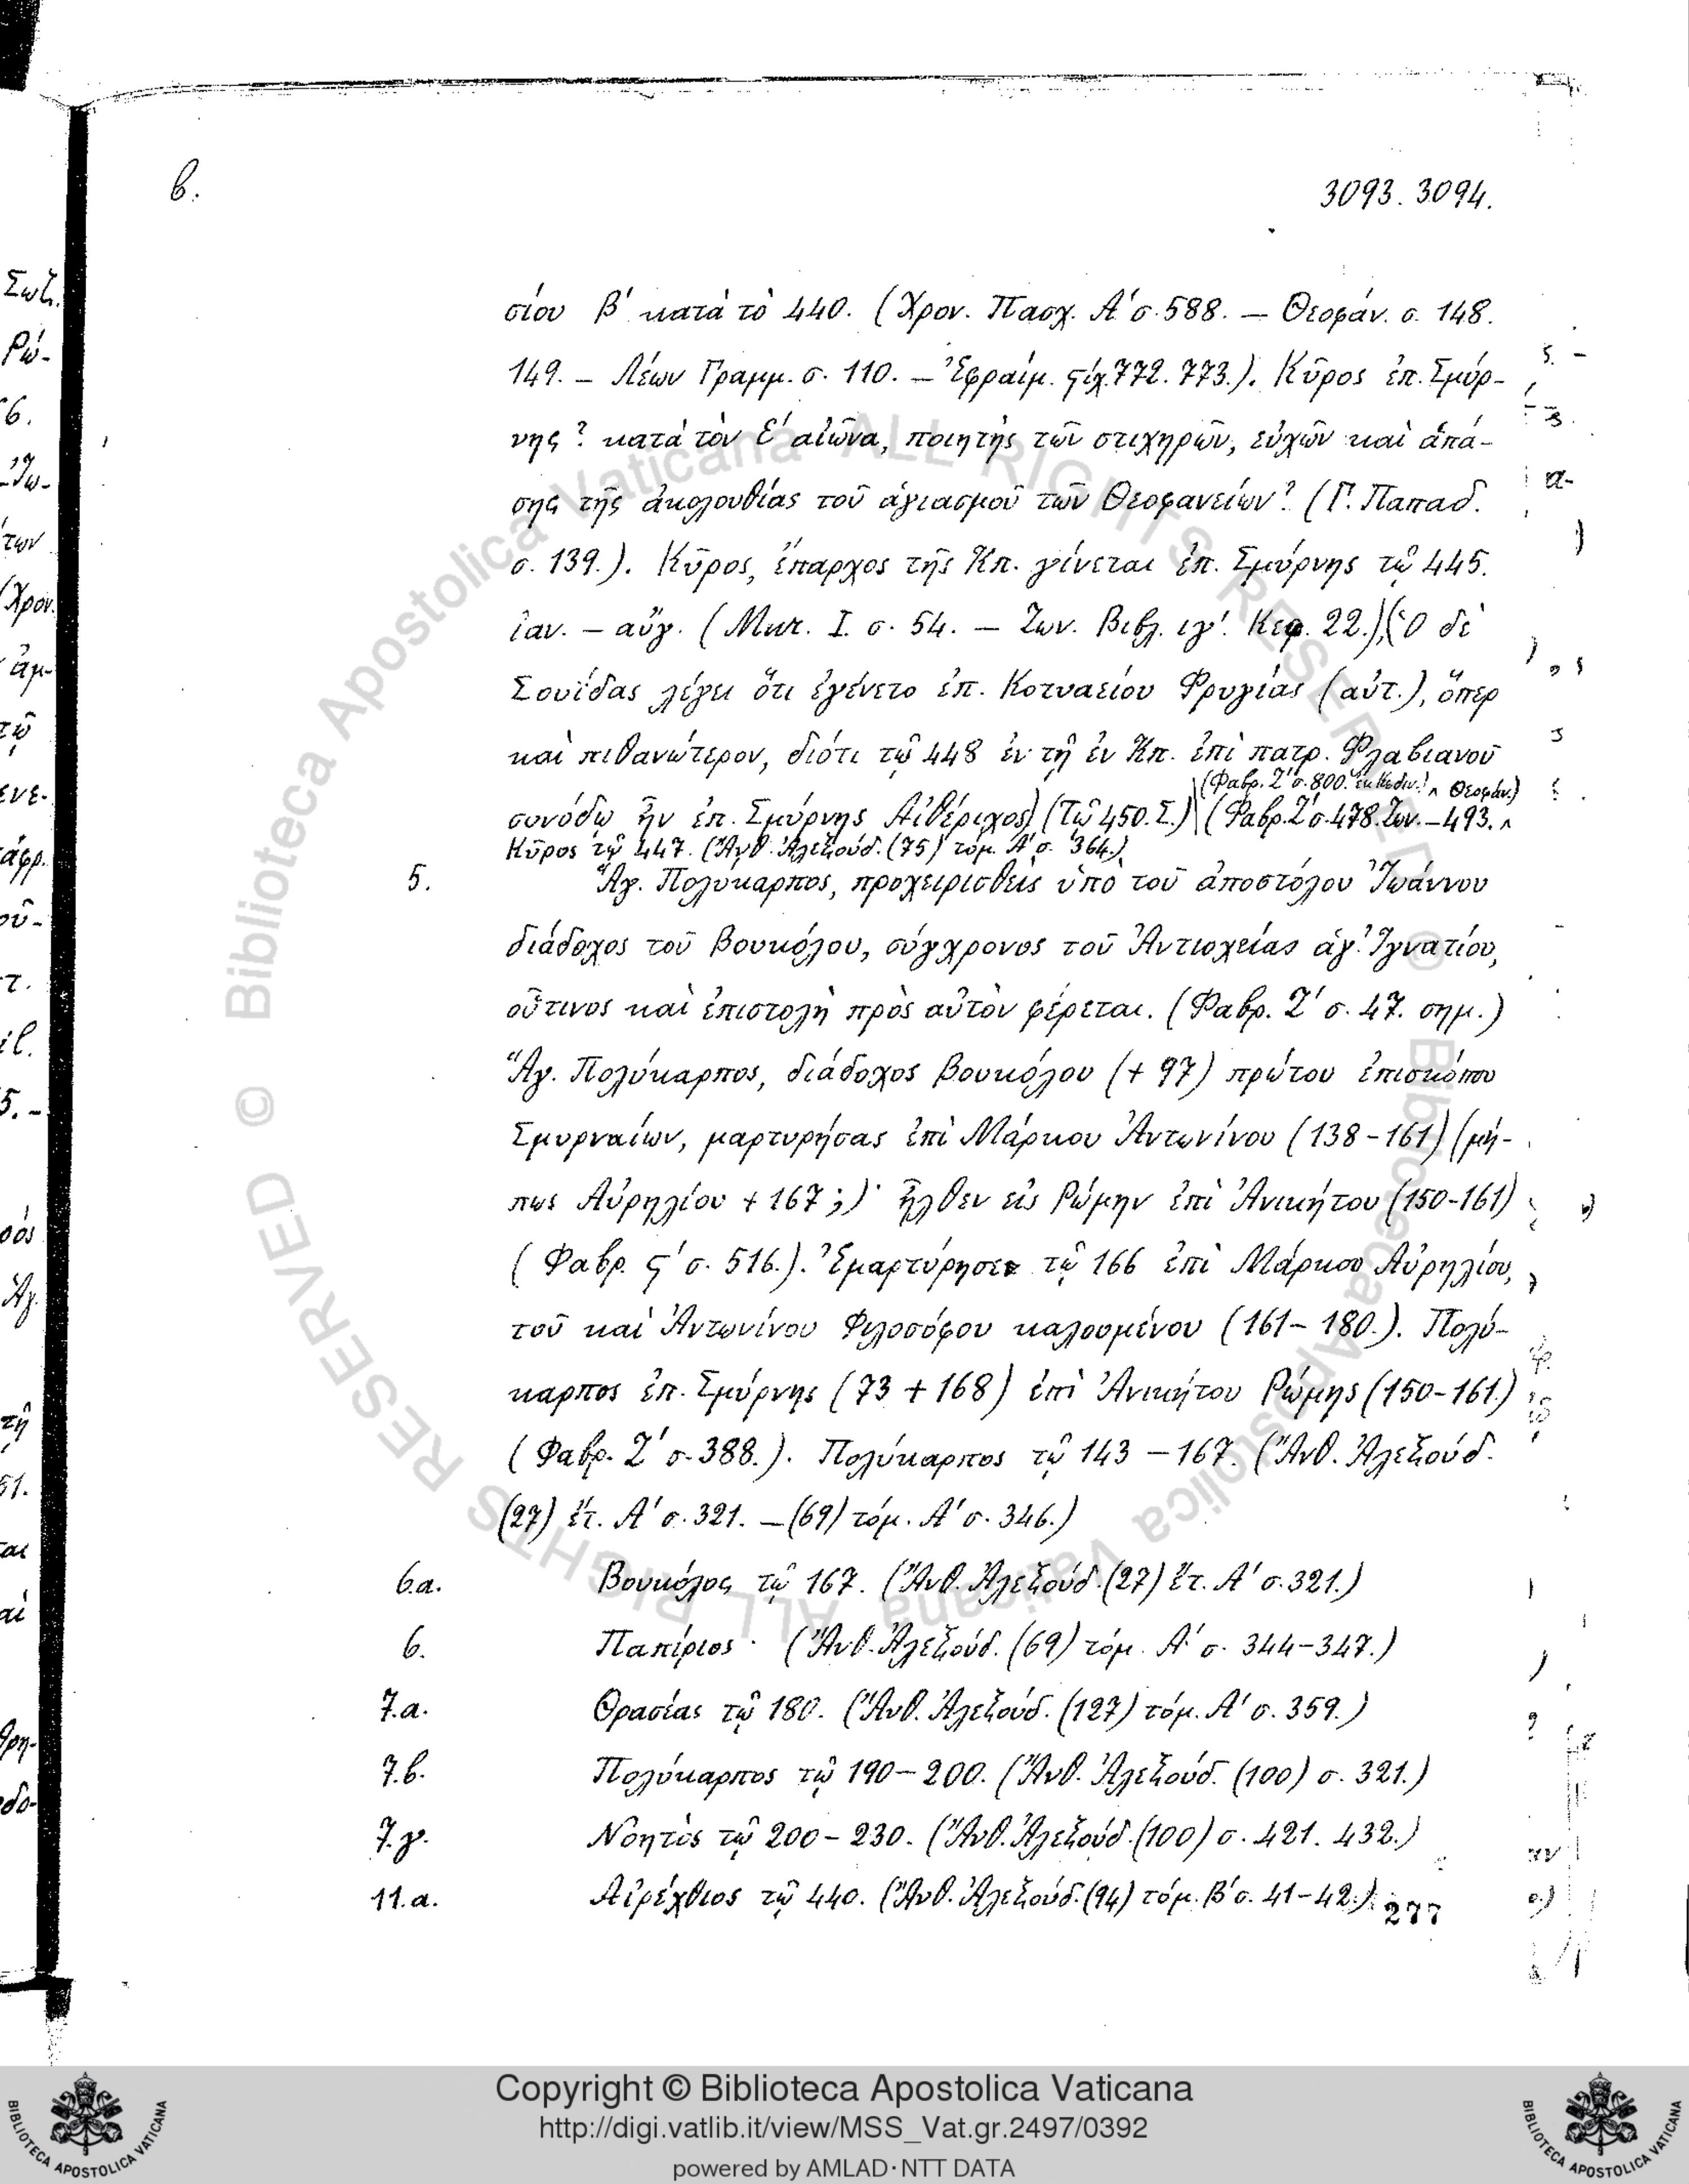 β.
3093. 3094.
σίου Β′ κατὰ τὸ 440. (Χρον. Πασχ. Α′ σ. 588. — Θεοφάν. σ. 148.
149. — Λέων Γραμμ. σ. 110. — Ἐφραίμ. ϛίχ. 772. 773.). Κῦρος ἐπ. Σμύρ-
νης? κατὰ τὸν Ε′ αἰῶνα, ποιητὴς τῶν στιχηρῶν, εὐχῶν καὶ ἁπά-
σης τῆς ἀκολουθίας τοῦ ἁγιασμοῦ τῶν Θεοφανείων? (Γ. Παπαδ.
σ. 139.). Κῦρος, ἔπαρχος τῆς Κπ. γίνεται ἐπ. Σμύρνης τῷ 445.
ἰαν. — αὔγ. (Μικ. Ι. σ. 54. — Ζων. Βιβλ. ιγ′. Κεφ. 22.), (Ὁ δὲ
Σουΐδας λέγει ὅτι ἐγένετο ἐπ. Κοτυαείου Φρυγίας (αὐτ.), ὅπερ
καὶ πιθανώτερον, διότι τῷ 448 ἐν τῇ ἐν Κπ. ἐπὶ πατρ. Φλαβιανοῦ
(Φαβρ. Ζ′ σ. 800. ἐκ Κεδιν.) ^ Θεοφάν.)
συνόδῳ ἦν ἐπ. Σμύρνης Αἰθέριχος) (Τῷ 450. Σ.) (Φαβρ. Ζ′ σ. 478. Ζων. — 493. ^
Κῦρος τῷ 447. (Ἄνθ. Ἀλεξούδ. (75) τόμ. Α′ σ. 364.)
5. Ἅγ. Πολύκαρπος, προχειρισθεὶς ὑπὸ τοῦ ἀποστόλου Ἰωάννου
διάδοχος τοῦ Βουκόλου, σύγχρονος τοῦ Ἀντιοχείας ἁγ. Ἰγνατίου,
οὗτινος καὶ ἐπιστολὴ πρὸς αὐτὸν φέρεται. (Φαβρ. Ζ′ σ. 47. σημ.)
Ἅγ. Πολύκαρπος, διάδοχος Βουκόλου (+ 97) πρώτου ἐπισκόπου
Σμυρναίων, μαρτυρήσας ἐπὶ Μάρκου Ἀντωνίνου (138-161) (μή-
πως Αὐρηλίου + 167;)· ἦλθεν εἰς Ρώμην ἐπὶ Ἀνικήτου (150-161)
(Φαβρ. ϛ′ σ. 516.). Ἐμαρτύρησε τῷ 166 ἐπὶ Μάρκου Αὐρηλίου,
τοῦ καὶ Ἀντωνίνου Φιλοσόφου καλουμένου (161-180.). Πολύ-
καρπος ἐπ. Σμύρνης (73 + 168) ἐπὶ Ἀνικήτου Ρώμης (150-161.)
(Φαβρ. Ζ′ σ. 388.). Πολύκαρπος τῷ 143 — 167. (Ἄνθ. Ἀλεξούδ.
(27) ἔτ. Α′ σ. 321. — (69) τόμ. Α′ σ. 346.)
6.α. Βουκόλος τῷ 167. (Ἄνθ. Ἀλεξούδ. (27) ἔτ. Α′ σ. 321.)
6. Παπίριος · (Ἄνθ. Ἀλεξούδ. (69) τόμ. Α′ σ. 344-347.)
7.α. Θρασέας τῷ 180. (Ἄνθ. Ἀλεξούδ. (127) τόμ. Α′ σ. 359.)
7.β. Πολύκαρπος τῷ 190-200. (Ἄνθ. Ἀλεξούδ. (100) σ. 321.)
7.γ. Νοητὸς τῷ 200-230. (Ἄνθ. Ἀλεξούδ. (100) σ. 421. 432.)
11.α. Αἰρέχθιος τῷ 440. (Ἄνθ. Ἀλεξούδ. (94) τόμ. Β′ σ. 41-42.)
277
© Biblioteca Apostolica Vaticana ALL RIGHTS RESERVED © Biblioteca Apostolica Vaticana ALL RIGHTS RESERVED
Copyright © Biblioteca Apostolica Vaticana
http://digi.vatlib.it/view/MSS_Vat.gr.2497/0392
powered by AMLAD·NTT DATA
BIBLIOTECA APOSTOLICA VATICANA
BIBLIOTECA APOSTOLICA VATICANA